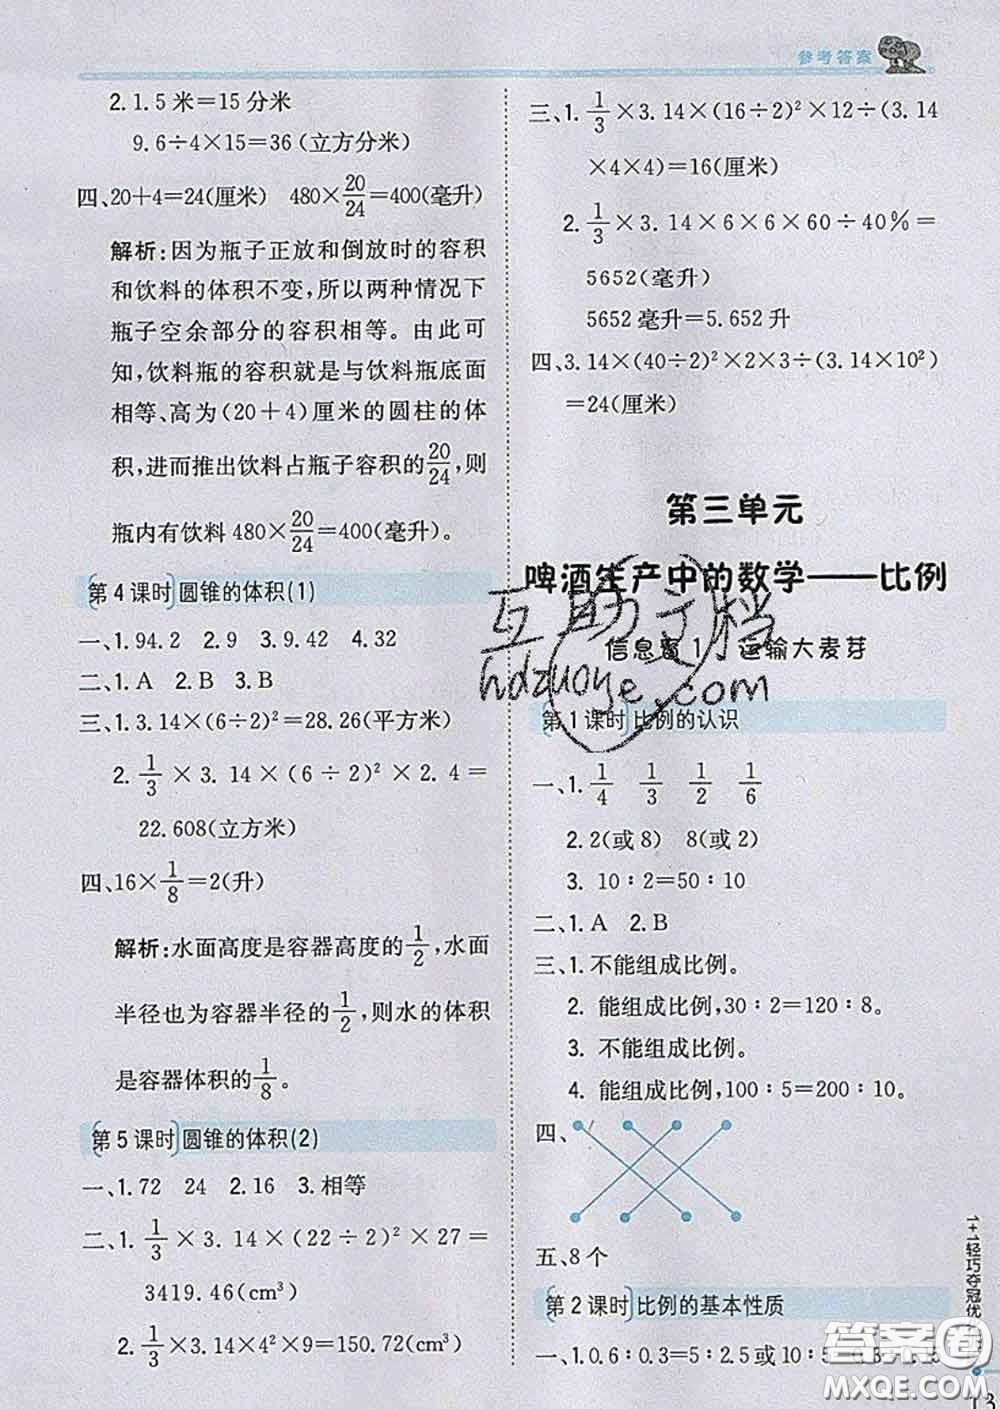 参考答案
2. 1.5米=15分米
9.6÷4×15=36(立方分米)
四、20+4=24(厘米) 480×20/24=400(毫升)
解析:因为瓶子正放和倒放时的容积
和饮料的体积不变,所以两种情况下
瓶子空余部分的容积相等。由此可
知,饮料瓶的容积就是与饮料瓶底面
相等、高为(20+4)厘米的圆柱的体
积,进而推出饮料占瓶子容积的20/24,则
瓶内有饮料480×20/24=400(毫升)。
第4课时 圆锥的体积(1)
一、1.94.2 2.9 3.9.42 4.32
二、1.A 2.B 3.B
三、1.3.14×(6÷2)²=28.26(平方米)
2. 1/3×3.14×(6÷2)²×2.4=
22.608(立方米)
四、16×1/8=2(升)
解析:水面高度是容器高度的1/2,水面
半径也为容器半径的1/2,则水的体积
是容器体积的1/8。
第5课时 圆锥的体积(2)
一、1.72 24 2.16 3.相等
二、1. 1/3×3.14×(22÷2)²×27=
3419.46(cm³)
2. 1/3×3.14×4²×9=150.72(cm³)
三、1. 1/3×3.14×(16÷2)²×12÷(3.14
×4×4)=16(厘米)
2. 1/3×3.14×6×6×60÷40%=
5652(毫升)
5652毫升=5.652升
四、3.14×(40÷2)²×2×3÷(3.14×10²)
=24(厘米)
第三单元
啤酒生产中的数学——比例
信息窗1 运输大麦芽
第1课时 比例的认识
一、1. 1/4 1/3 1/2 1/6
2. 2(或8) 8(或2)
3. 10∶2=50∶10
二、1.A 2.B
三、1. 不能组成比例。
2. 能组成比例,30∶2=120∶8。
3. 不能组成比例。
4. 能组成比例,100∶5=200∶10。
四、
五、8个
第2课时 比例的基本性质
一、1.0.6∶0.3=5∶2.5或10∶5=
1+1轻巧夺冠优
13
互助文档
hdzuoye.com
答案圈
MXQE.COM